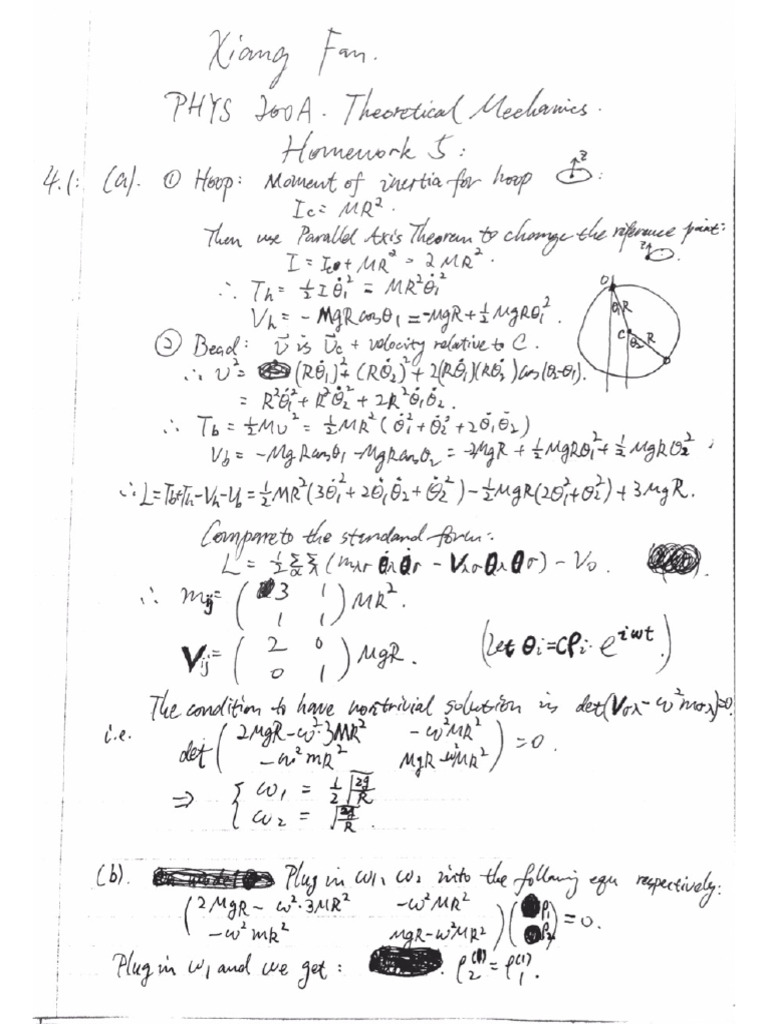 Xiang Fan.
PHYS 200A. Theoretical Mechanics.
Homework 5:
4.1: (a). ① Hoop: Moment of inertia for hoop z :
I_c = MR².
Then use Parallel Axis Theorem to change the reference point:
I = I_c + MR² = 2MR².
∴ T_h = ½ I θ̇₁² = MR²θ̇₁²
V_h = - MgR cosθ₁ = -MgR + ½ MgRθ₁².
② Bead: v⃗ is v⃗_c + velocity relative to C.
∴ v² = (Rθ̇₁)² + (Rθ̇₂)² + 2(Rθ̇₁)(Rθ̇₂) cos(θ₂-θ₁).
= R²θ̇₁² + R²θ̇₂² + 2R²θ̇₁θ̇₂.
O θ₁ R C θ₂ R
∴ T_b = ½Mv² = ½MR² (θ̇₁² + θ̇₂² + 2θ̇₁θ̇₂)
V_b = -MgR cosθ₁ - MgR cosθ₂ = -2MgR + ½MgRθ₁² + ½MgRθ₂²
∴ L = T_b + T_h - V_h - V_b = ½MR² (3θ̇₁² + 2θ̇₁θ̇₂ + θ̇₂²) - ½MgR(2θ₁² + θ₂²) + 3MgR.
Compare to the standard form:
L = ½ Σ_σ Σ_λ (m_λσ θ̇_λ θ̇_σ - V_λσ θ_λ θ_σ) - V₀.
∴ m_ij = ( 3 1
1 1 ) MR².
V_ij = ( 2 0
0 1 ) MgR. (Let θ_i = Cρ_i · e^{iωt}.)
The condition to have nontrivial solution is det(V_σλ - ω²m_σλ)=0.
i.e. det ( 2MgR - ω²·3MR² -ω²MR²
-ω²mR² MgR - ω²MR² ) = 0.
⇒ { ω₁ = ½ √(2g/R)
ω₂ = √(2g/R).
(b). Plug in ω₁, ω₂ into the following equ respectively:
( 2MgR - ω²·3MR² -ω²MR²
-ω²mR² MgR - ω²MR² ) ( ρ₁ ρ₂ ) = 0.
Plug in ω₁ and we get : ρ₂^(1) = ρ₁^(1).